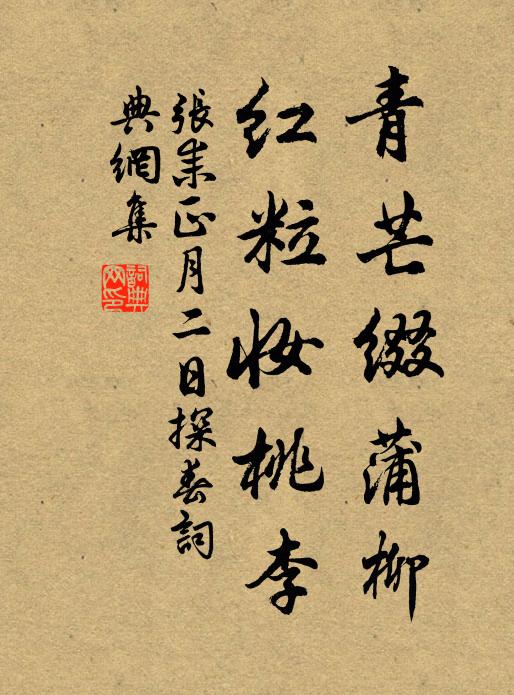 青芒缀蒲柳
红粒妆桃李
張耒正月二日探春詞
典網集
詞典网印